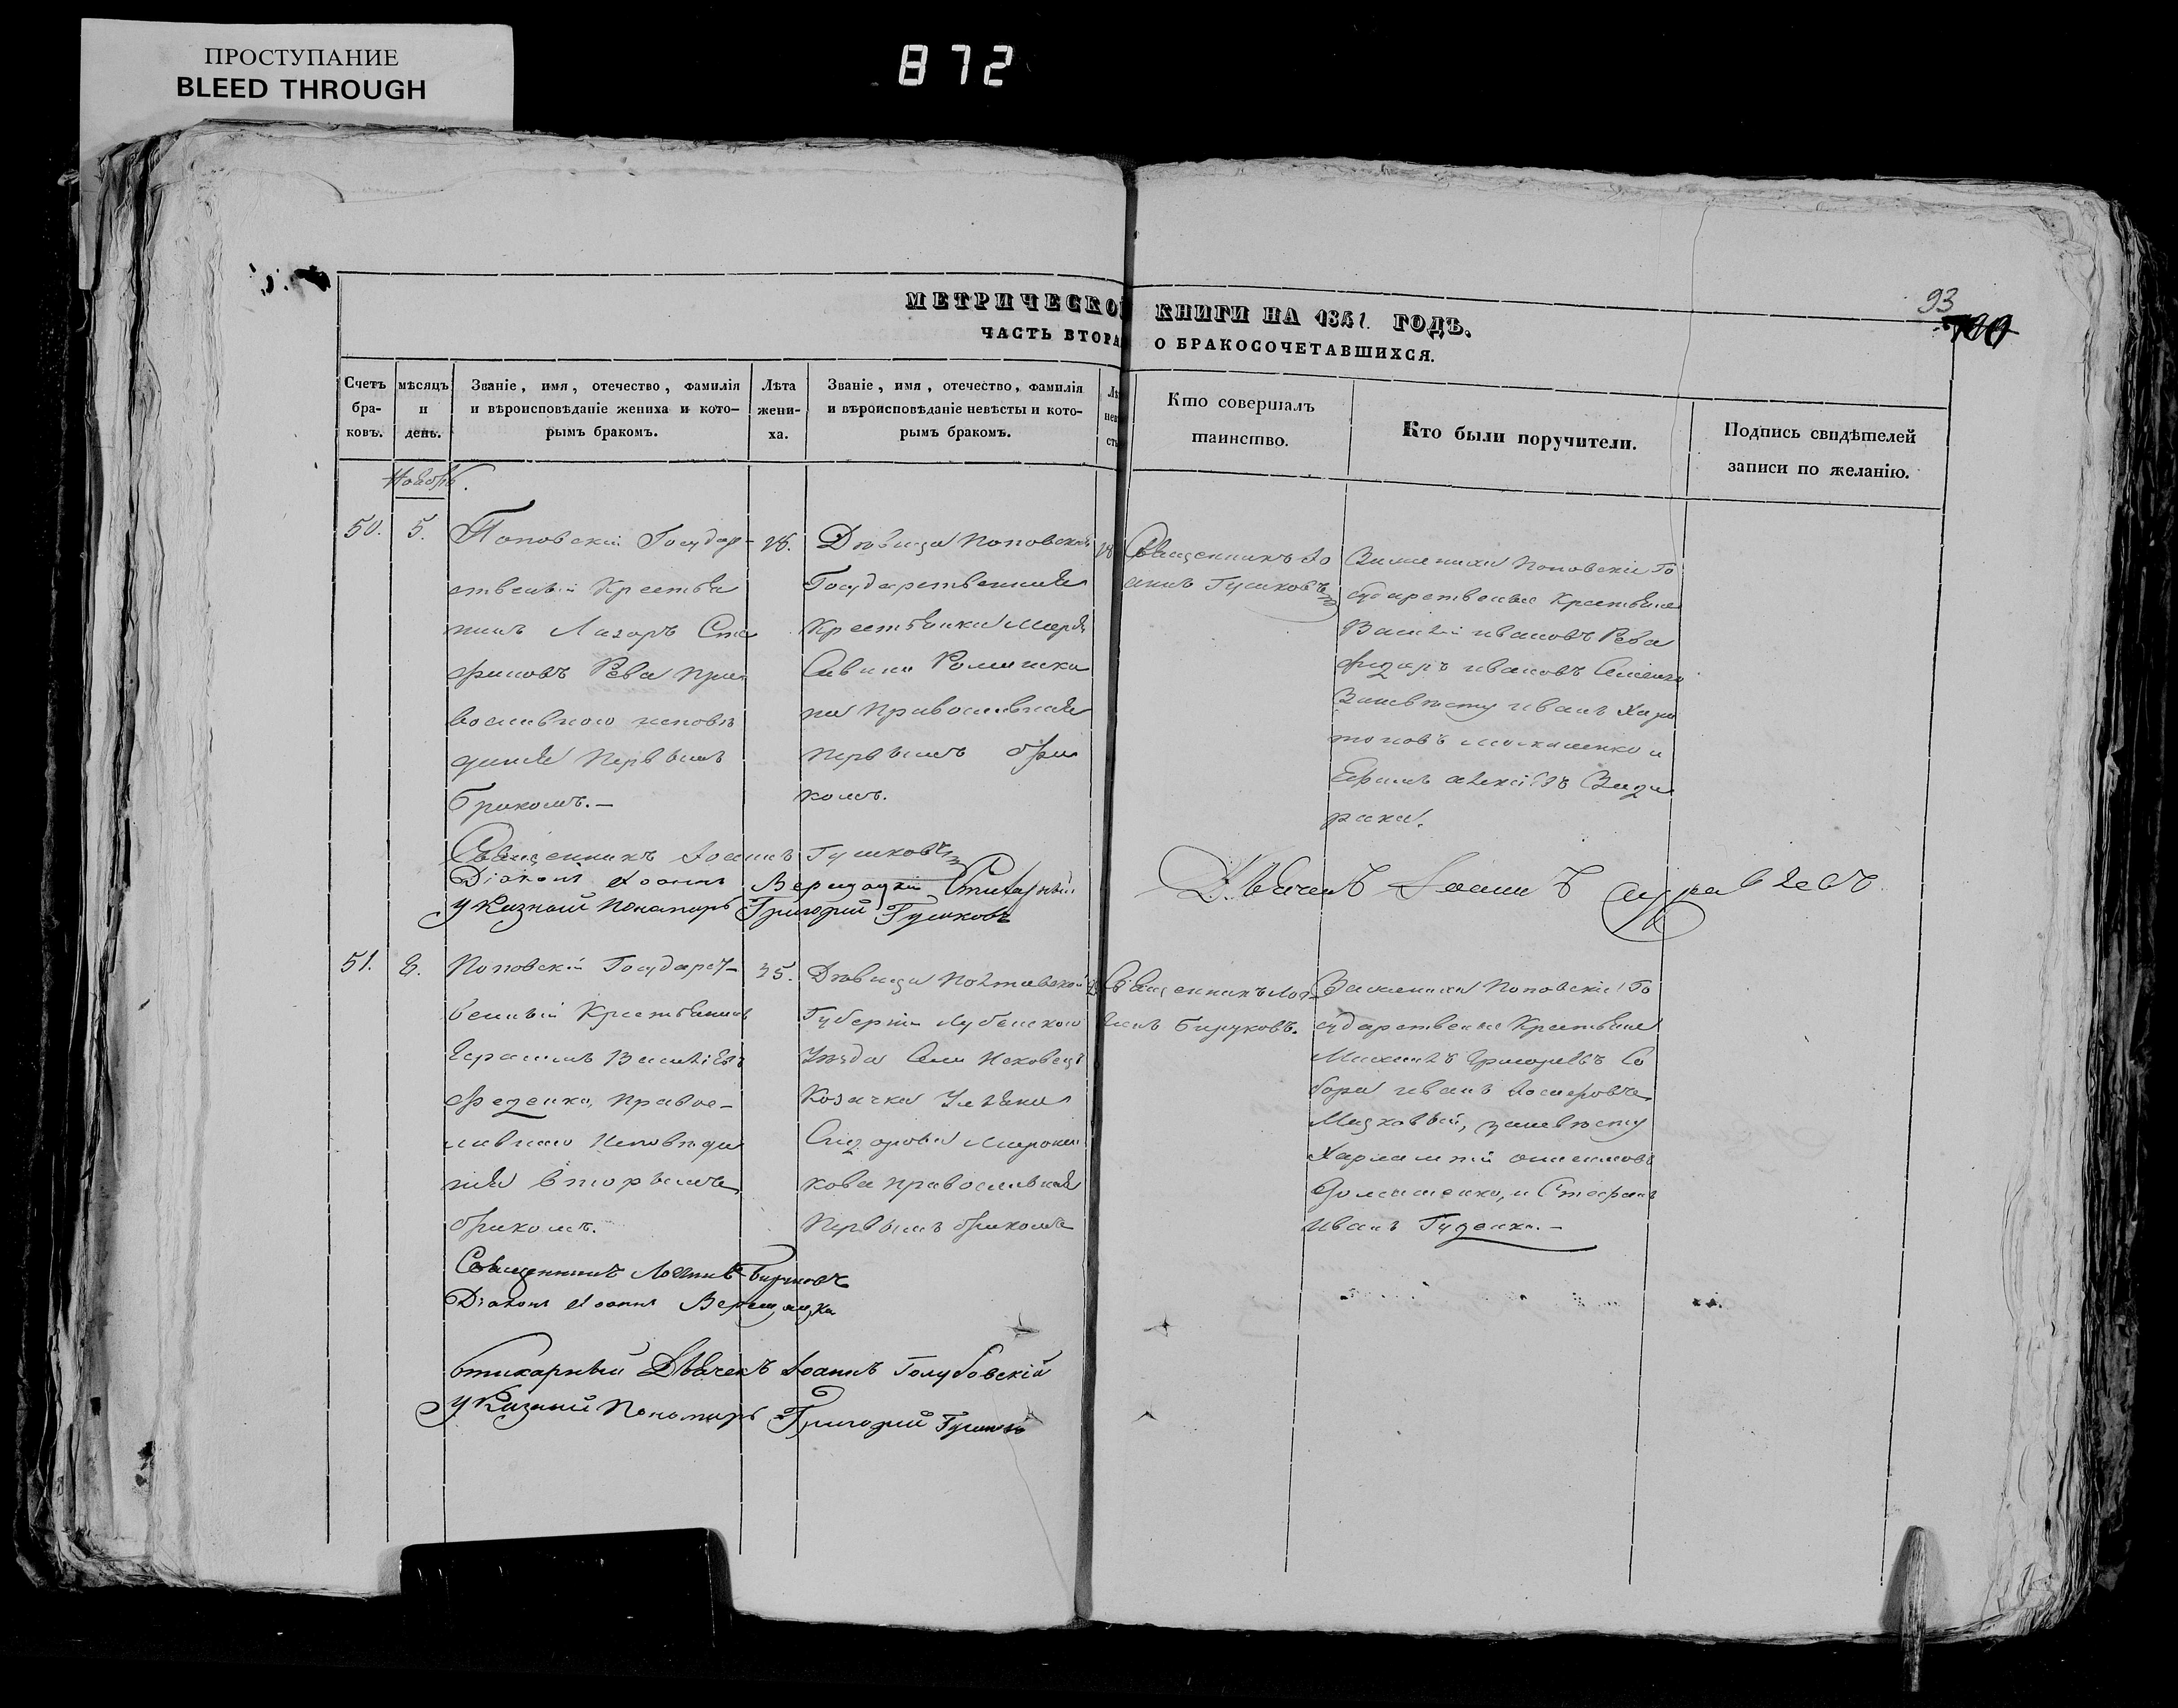 ПРОСТУПАНИЕ
BLEED THROUGH
872
93
100
МЕТРИЧЕСКОЙ КНИГИ НА 1841. ГОДЪ,
ЧАСТЬ ВТОРАЯ О БРАКОСОЧЕТАВШИХСЯ.
Счетъ
бра-
ковъ.
мѣсяцъ
и
день.
Званіе, имя, отечество, фамилія
и вѣроисповѣданіе жениха и кото-
рымъ бракомъ.
Лѣта
жени-
ха.
Званіе, имя, отечество, фамилія
и вѣроисповѣданіе невѣсты и кото-
рымъ бракомъ.
Лѣ
нев
сты
Кто совершалъ
таинство.
Кто были поручители.
Подпись свидѣтелей
записи по желанію.
Ноябрь.
50.
5.
Поповскій Государ-
ственый Крестья
нинъ Лазарь Сте
фановъ Рева пра
вославного исповѣ
данія первымъ
бракомъ.—
18.
Дѣвица Поповская
Государственная
Крестьянка Марья
Савина Ромашки
на православная
первымъ бра
комъ.
18
Священникъ Іо
аннъ Гушковъ
За жениха Поповскіе Го
сударственые Крестьяне
Василій Ивановъ Рева
Ивановъ
За невѣсту Иванъ Хари
тоновъ и
Ефимъ Алексѣевъ
Священникъ Іоаннъ Гушковъ
Діаконъ Іоаннъ Стихарный
Указный Пономарь Григорій Гушковъ
Дьячекъ Іоаннъ Журавлевъ
51.
Поповскій Государст-
венный Крестьянинъ
Герасимъ Васильевъ
Феденко, Право-
славнаго исповѣда
нія вторымъ
бракомъ.
35.
Дѣвица Полтавской
Губерніи Лубенского
Уѣзда Села
Козачка Ульяна
Сидорова Мирошни
кова православная
первымъ бракомъ
Священникъ Ло
гинъ Бируковъ.
За жениха Поповскіе Го
сударственые Крестьяне
Михаилъ Григорьевъ Со
бора Иванъ Іосифовъ
за невѣсту
Харлампій
Домашенко, и Стефанъ
Иванъ Гуденко.—
Священникъ Логинъ Бируковъ
Діаконъ Іоаннъ
Стихарный Дьячекъ Іоаннъ Голубовскій
Указный Пономарь Григорій Гушковъ